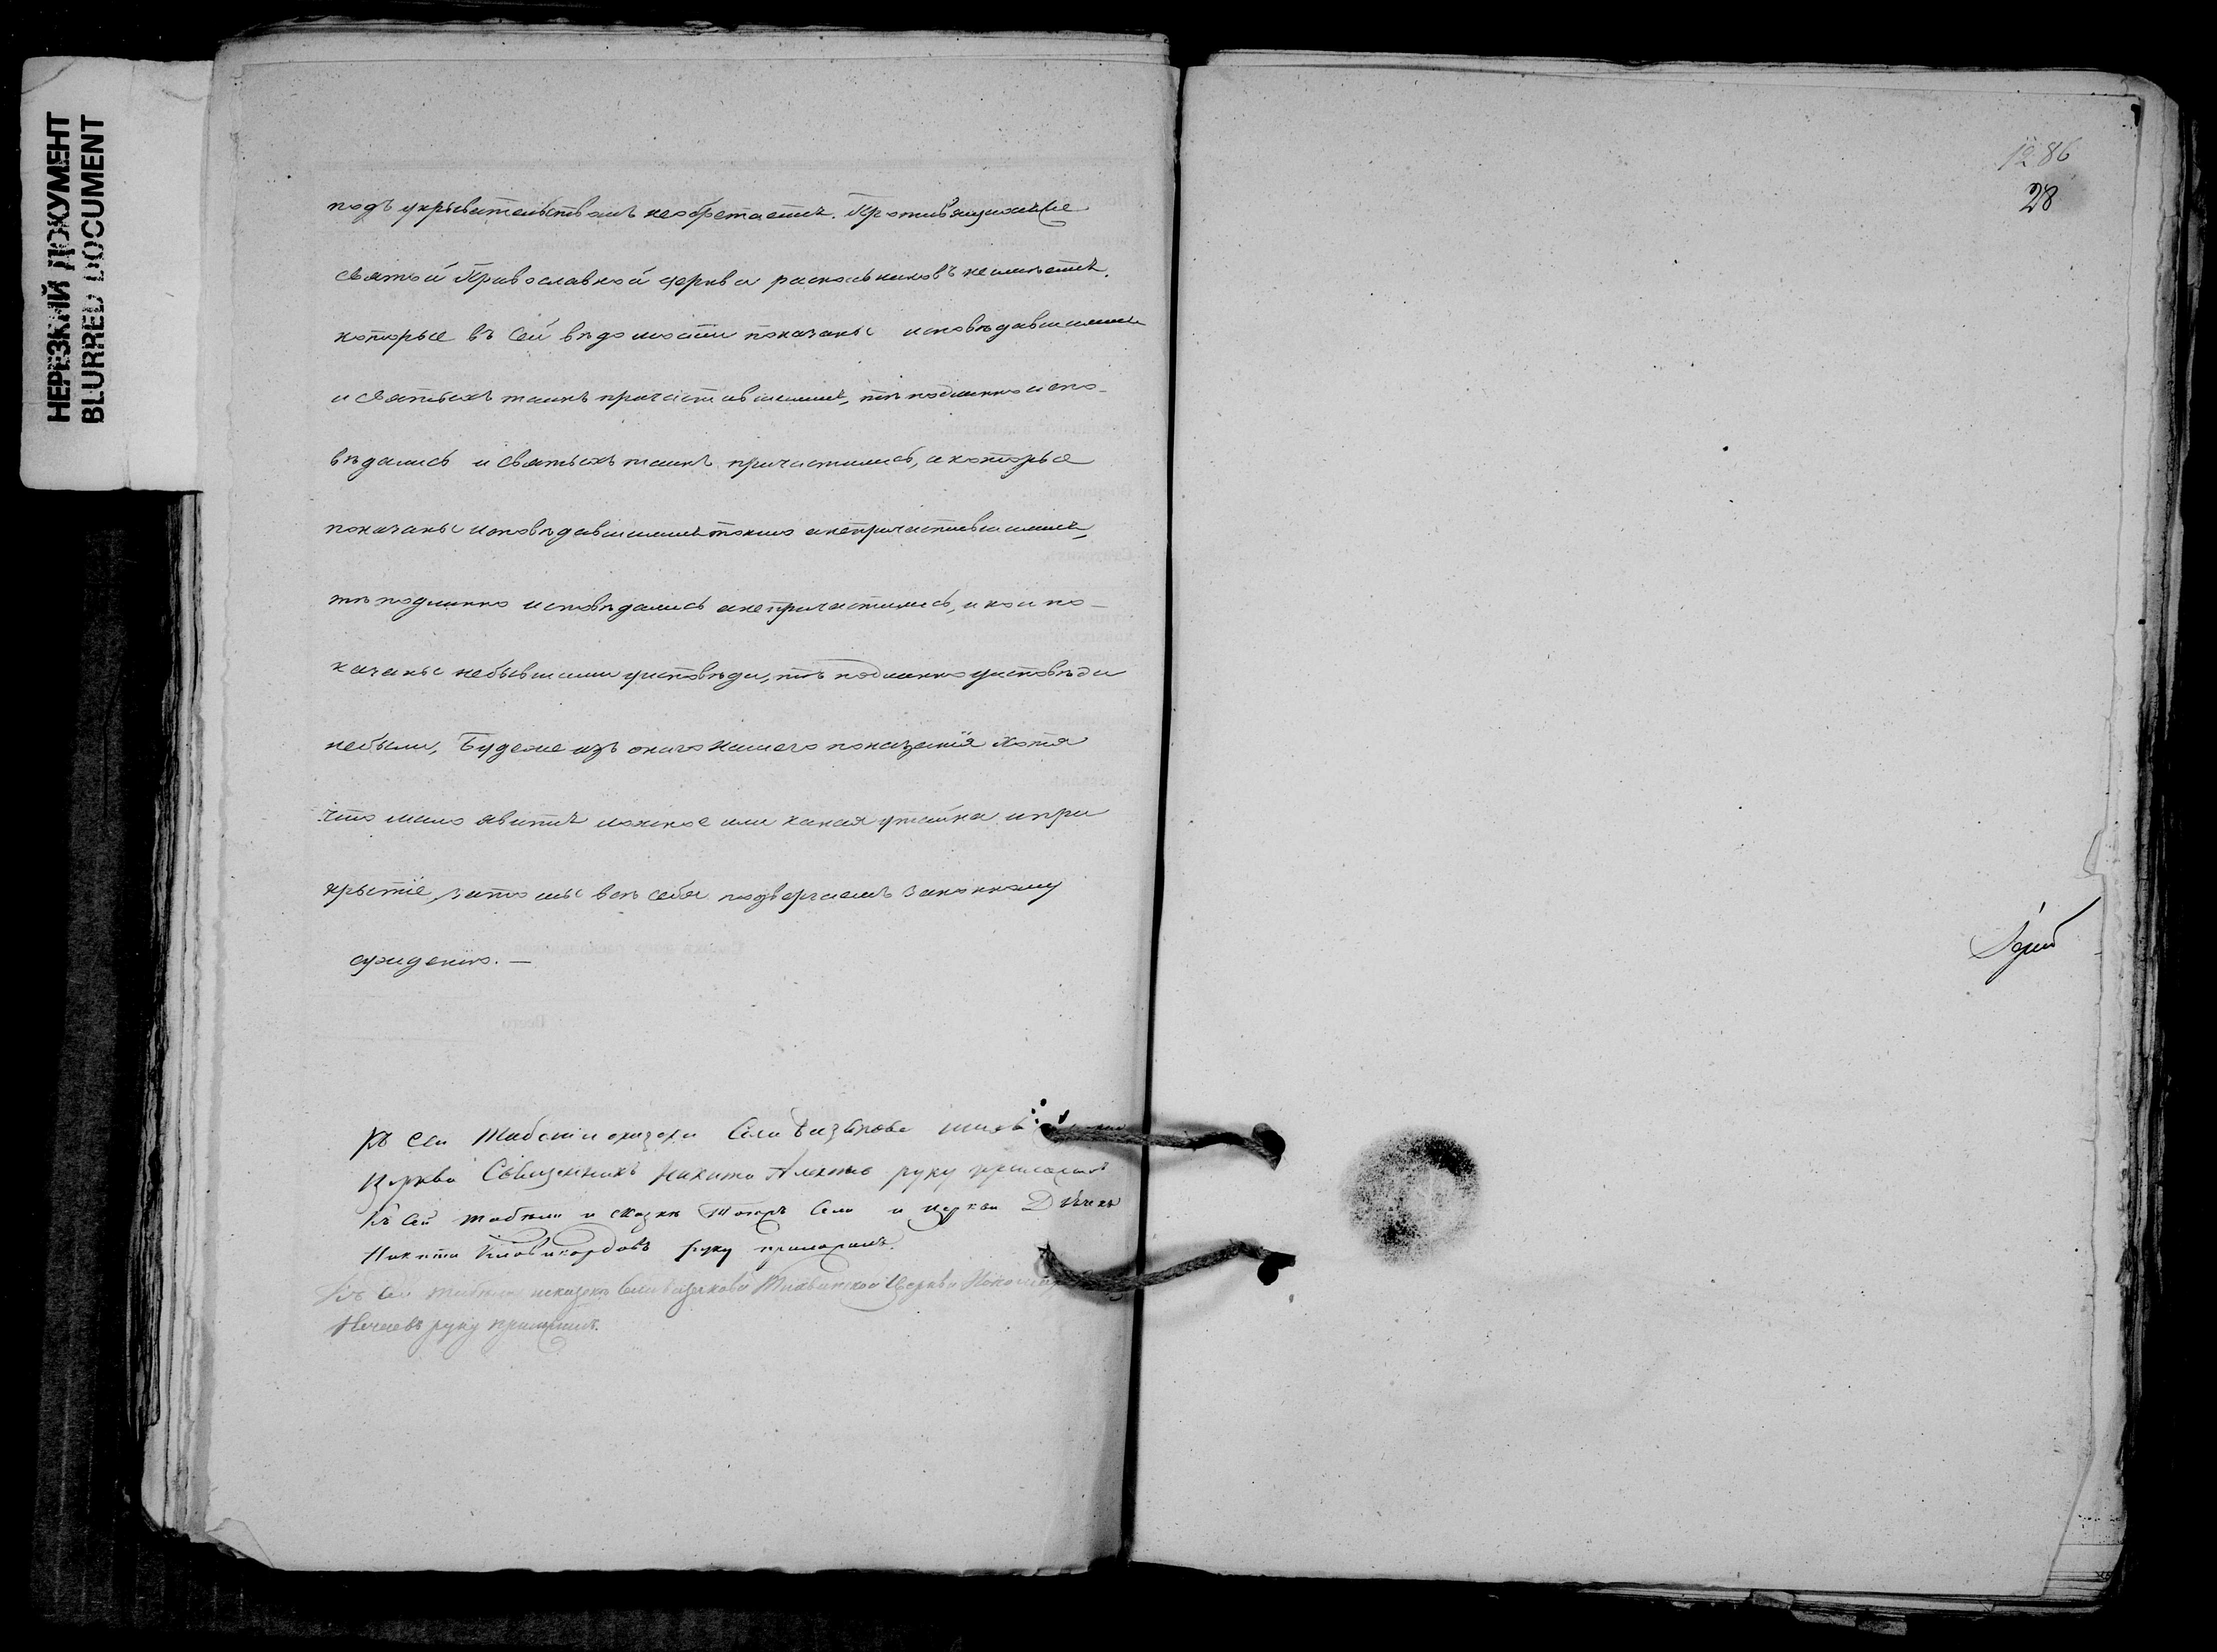 НЕРЕЗКИЙ ДОКУМЕНТ
BLURRED DOCUMENT
подъ укрывательствомъ необретается. Противящихся
святой Православной церкви раскольниковъ неимѣется.
которые въ сей вѣдомости показаны исповѣдавшимися
и святыхъ таинъ причастившимися, тѣ подлинно испо-
вѣдались и святыхъ таинъ причастились, а которые
показаны исповѣдавшимися токмо а непричастившимися,
тѣ подлинно исповѣдались а непричастились, и кои по-
казаны небывшими уисповѣди, тѣ подлинно уисповѣди
небыли, Будеже изъ онаго нашего показанія хотя
что мало явится ложное или какая утайка и при
крытіе, зато мы всѣ себя подвергаемъ законному
суждению. —
Къ сей Табели и сказки Села
Церкви Священникъ Никита руку приложилъ
Къ сей табели и сказки Тогожъ Села и церкви Дьячекъ
Никита руку приложилъ.
Къ сей табели исказкѣ Села Церкви Пономарь
руку приложилъ.
1286
28